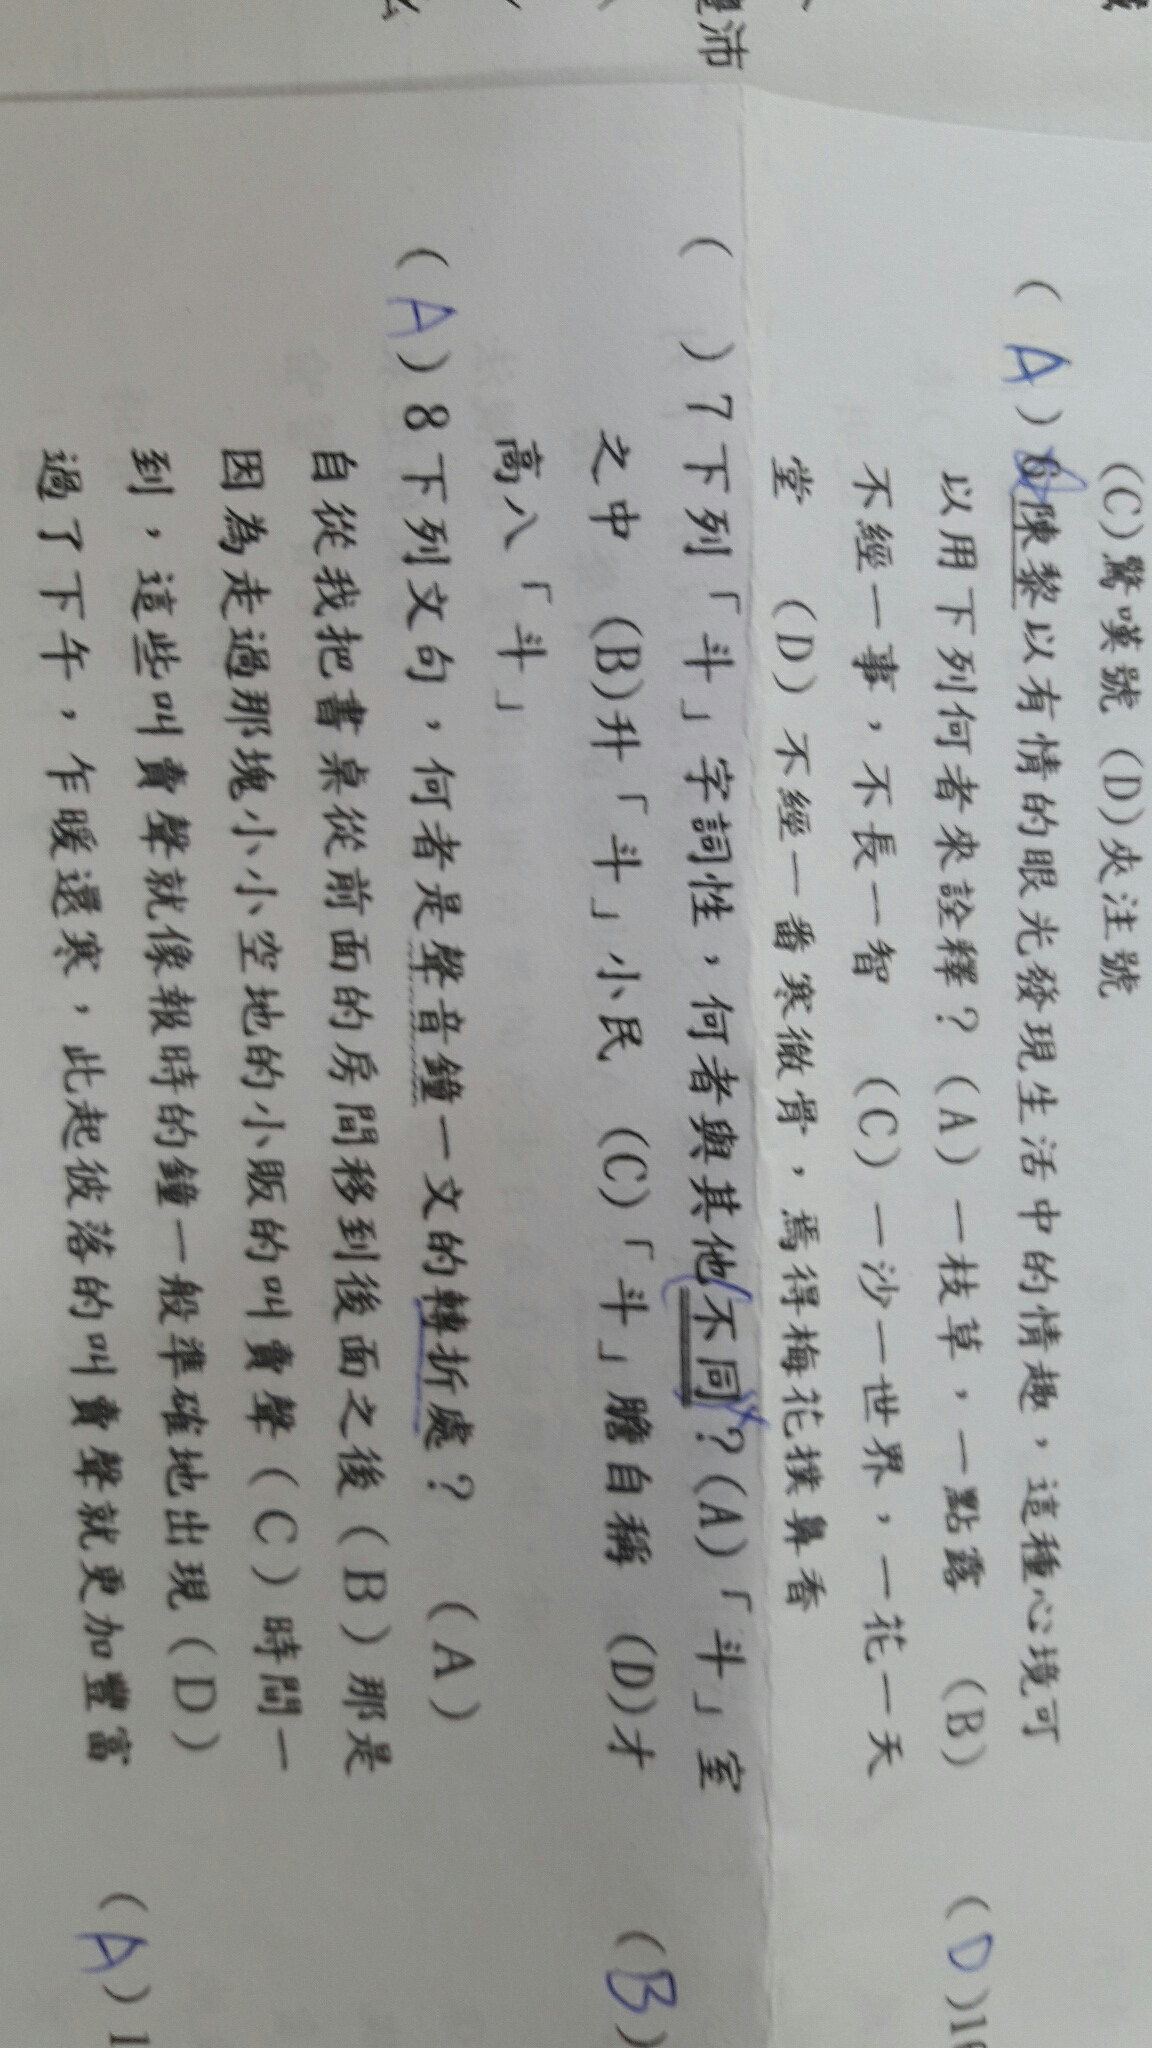 沛
(C)驚嘆號 (D)夾注號
( A )6陳黎以有情的眼光發現生活中的情趣，這種心境可
以用下列何者來詮釋？(A)一枝草，一點露 (B)
不經一事，不長一智 (C)一沙一世界，一花一天
堂 (D)不經一番寒徹骨，焉得梅花撲鼻香
( )7下列「斗」字詞性，何者與其他不同？(A)「斗」室
之中 (B)升「斗」小民 (C)「斗」膽自稱 (D)才
高八「斗」
( A )8下列文句，何者是聲音鐘一文的轉折處？ (A)
自從我把書桌從前面的房間移到後面之後 (B)那是
因為走過那塊小小空地的小販的叫賣聲 (C)時間一
到，這些叫賣聲就像報時的鐘一般準確地出現 (D)
過了下午，乍暖還寒，此起彼落的叫賣聲就更加豐富
( D )1
( B )
( A )1